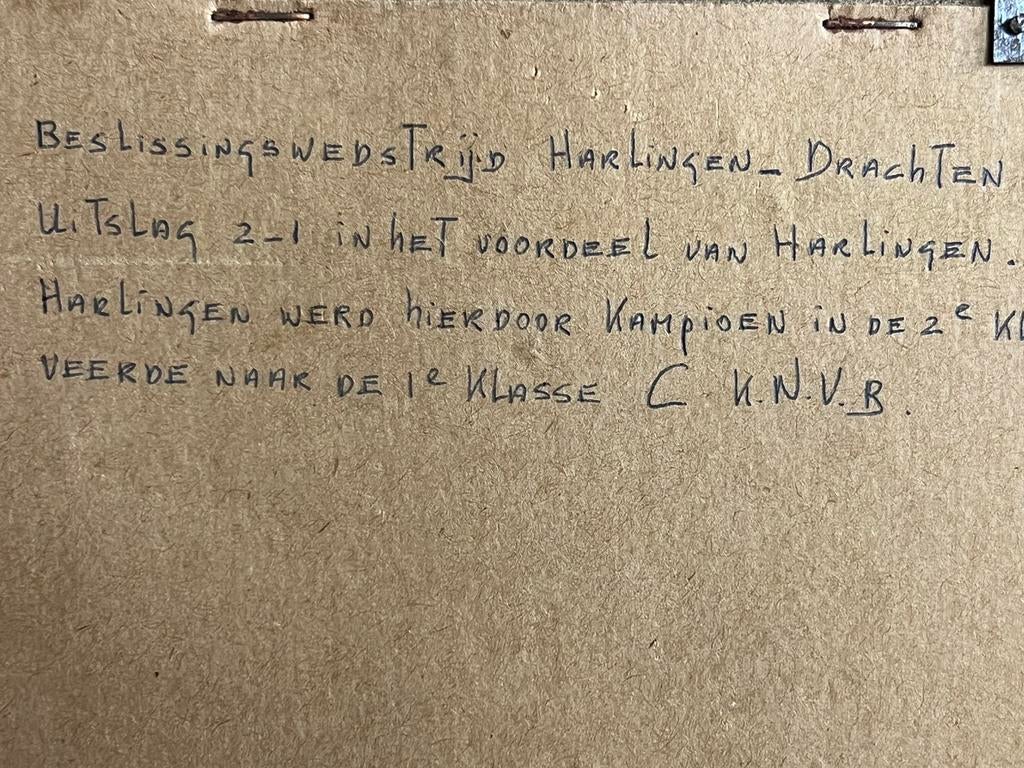 Beslissingswedstrijd Harlingen - Drachten
Uitslag 2-1 in het voordeel van Harlingen.
Harlingen werd hierdoor Kampioen in de 2e Kl
veerde naar de 1e Klasse C K.N.V.B.